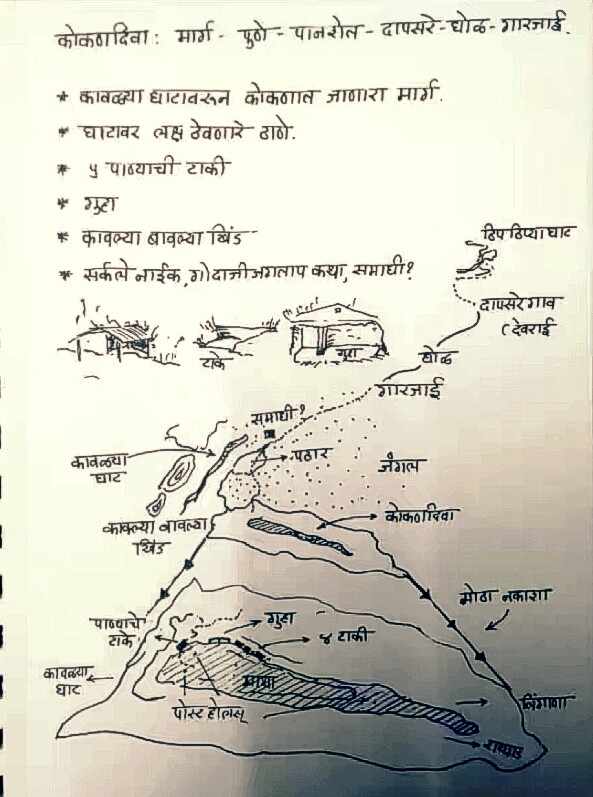 कोकणदिवा: मार्ग - पुणे - पानशेत - दापसरे - घोळ - गारजाई.
* कावळ्या घाटावरून कोकणात जाणारा मार्ग.
* घाटावर लक्ष ठेवणारे ठाणे.
* ५ पाण्याची टाकी
* गुहा
* कावल्या बावल्या खिंड
* सर्कले नाईक, गोदाजी जगताप कथा, समाधी?
ठिपठिप्या घाट
दापसरे गाव
(देवराई
घोळ
टाके
गुहा
गारजाई
समाधी?
पठार
कावळ्या
घाट
जंगल
कावल्या बावल्या
खिंड
कोकणदिवा
मोठा नकाशा
पाण्याचे
टाके
गुहा
४ टाकी
कावळ्या
घाट
माथा
लिंगाणा
पोस्ट होल्स्
रायगड